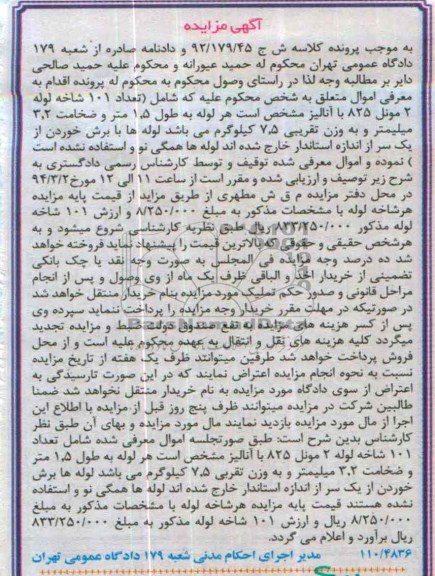 آگهی مزایده
به موجب پرونده کلاسه ش ج ۹۲/۱۷۹/۴۵ و دادنامه صادره از شعبه ۱۷۹
دادگاه عمومی تهران محکوم له حمید عیورانه و محکوم علیه حمید صالحی
دایر بر مطالبه وجه لذا در راستای وصول محکوم به محکوم له پرونده اقدام به
معرفی اموال متعلق به شخص محکوم علیه که شامل (تعداد ۱۰۱ شاخه لوله
۲ مونل ۸۲۵ با آنالیز مشخص است هر لوله به طول ۱,۵ متر و ضخامت ۳,۲
میلیمتر و به وزن تقریبی ۷,۵ کیلوگرم می باشد لوله ها با برش خوردن از
یک سر از اندازه استاندار خارج شده اند لوله ها همگی نو و استفاده نشده است
) نموده و اموال معرفی شده توقیف و توسط کارشناس رسمی دادگستری به
شرح زیر توصیف و ارزیابی شده و مقرر است از ساعت ۱۱ الی ۱۲ مورخ ۹۴/۳/۲
در محل دفتر مزایده م ق ش مطهری از طریق مزاید از قیمت پایه مزایده
هرشاخه لوله با مشخصات مذکور به مبلغ ۸/۲۵۰/۰۰۰ و ارزش ۱۰۱ شاخه
لوله مذکور ۸۳۳/۲۵۰/۰۰۰ ریال طبق نظریه کارشناسی شروع میشود و به
هرشخص حقیقی و حقوقی که بالاترین قیمت را پیشنهاد نماید فروخته خواهد
شد ده درصد وجه مزایده فی المجلس به صورت وجه نقد یا چک بانکی
تضمینی از خریدار اخذ و الباقی ظرف یک ماه از وی وصول و پس از انجام
مراحل قانونی و صدور حکم تملیک مورد مزایده بنام خریدار منتقل خواهد شد
در صورتیکه در مهلت مقرر خریدار وجه مزایده را پرداخت ننماید سپرده وی
پس از کسر هزینه های مزایده به نفع صندوق دولت ضبط و مزایده تجدید
میگردد کلیه هزینه های نقل و انتقال به عهده محکوم علیه است و از محل
فروش پرداخت خواهد شد طرفین میتوانند ظرف یک هفته از تاریخ مزایده
نسبت به نحوه انجام مزایده اعتراض نمایند که در این صورت تارسیدگی به
اعتراض از سوی دادگاه مورد مزایده به نام خریدار منتقل نخواهد شد ضمنا
طالبین شرکت در مزایده میتوانند ظرف پنج روز قبل از مزایده با اطلاع این
اجرا از مال مورد مزایده بازدید نمایند مال مورد مزایده و بهای آن طبق نظر
کارشناس بدین شرح است: طبق صورتجلسه اموال معرفی شده شامل تعداد
۱۰۱ شاخه لوله ۲ مونل ۸۲۵ با آنالیز مشخص است هر لوله به طول ۱,۵ متر
و ضخامت ۳,۲ میلیمتر و به وزن تقریبی ۷,۵ کیلوگرم می باشد لوله ها برش
خوردن از یک سر از اندازه استاندار خارج شده اند لوله ها همگی نو و استفاده
نشده هستند قیمت پایه مزایده هرشاخه لوله با مشخصات مذکور به مبلغ
۸/۲۵۰/۰۰۰ ریال و ارزش ۱۰۱ شاخه لوله مذکور به مبلغ ۸۳۳/۲۵۰/۰۰۰
ریال برآورد و اعلام می گردد.
۱۱۰/۴۸۳۶ مدیر اجرای احکام مدنی شعبه ۱۷۹ دادگاه عمومی تهران